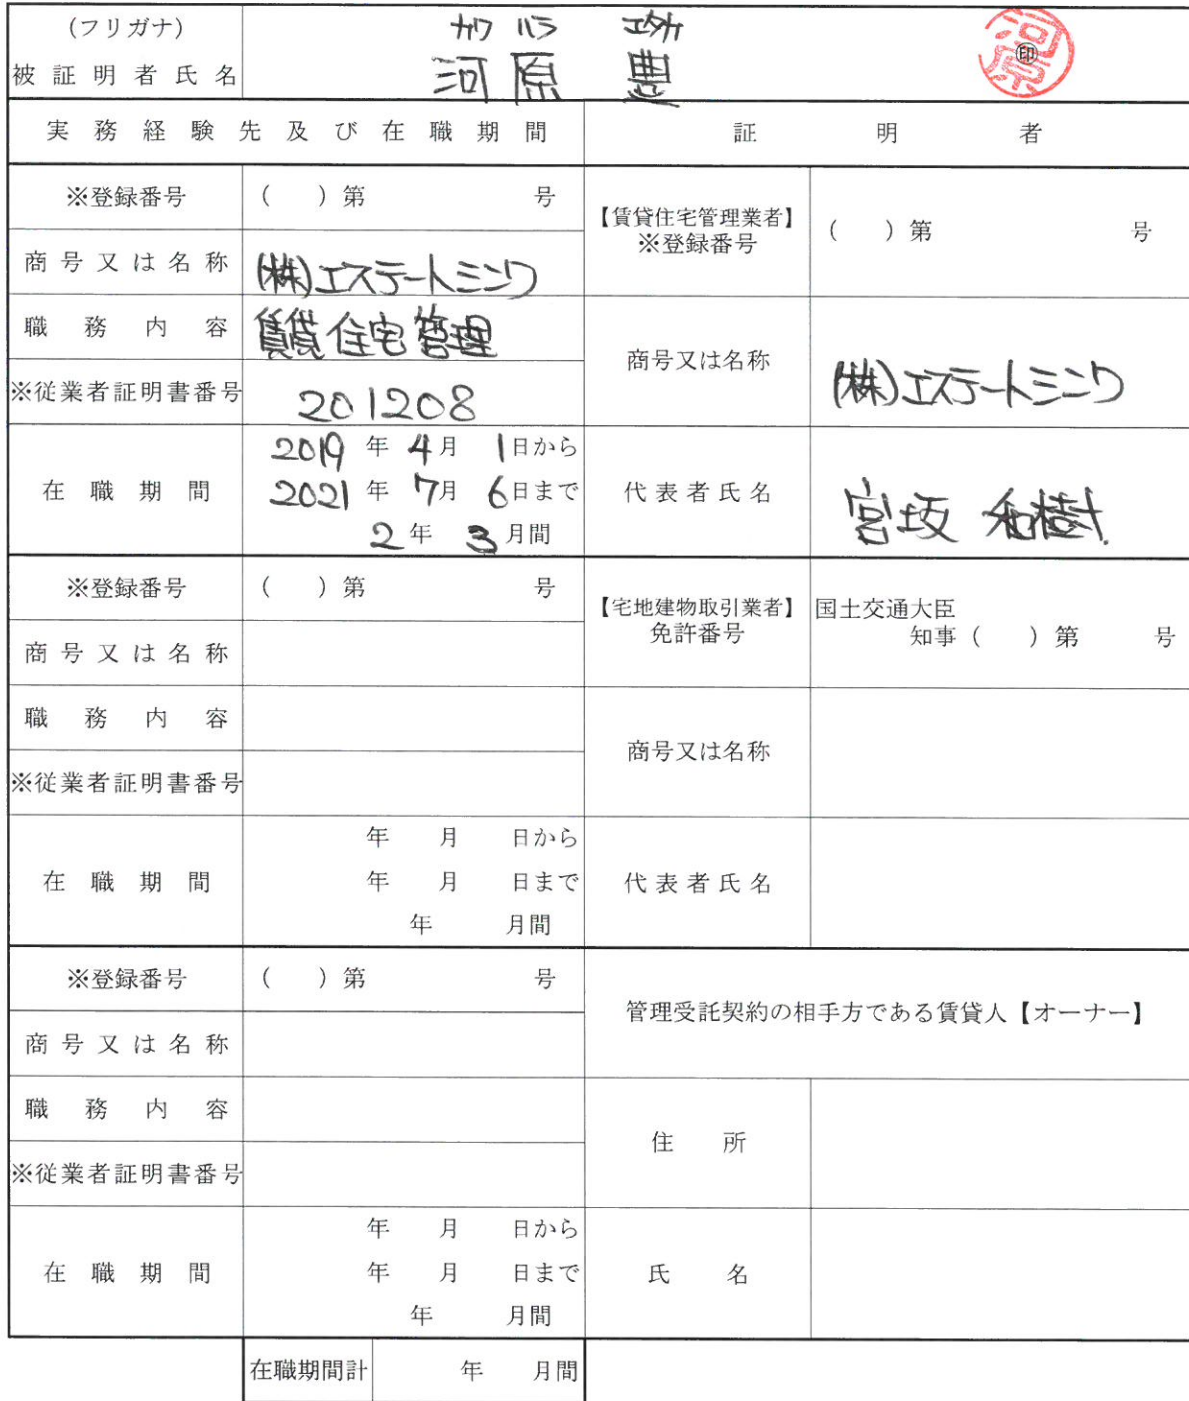 (フリガナ) カワ ハラ ユタカ
被証明者氏名 河原 豊 ㊞ 河原
実務経験先及び在職期間 証明者
※登録番号 ( ) 第 号
【賃貸住宅管理業者】 ※登録番号 ( ) 第 号
商号又は名称 (株)エステートミンワ
職務内容 賃貸住宅管理
商号又は名称 (株)エステートミンワ
※従業者証明書番号 201208
在職期間 2019年 4月 1日から
2021年 7月 6日まで
2年 3月間
代表者氏名 宮坂 和樹
※登録番号 ( ) 第 号
【宅地建物取引業者】 免許番号 国土交通大臣
知事 ( ) 第 号
商号又は名称
職務内容
商号又は名称
※従業者証明書番号
在職期間 年 月 日から
年 月 日まで
年 月間
代表者氏名
※登録番号 ( ) 第 号
管理受託契約の相手方である賃貸人【オーナー】
商号又は名称
職務内容
住所
※従業者証明書番号
在職期間 年 月 日から
年 月 日まで
年 月間
氏名
在職期間計 年 月間